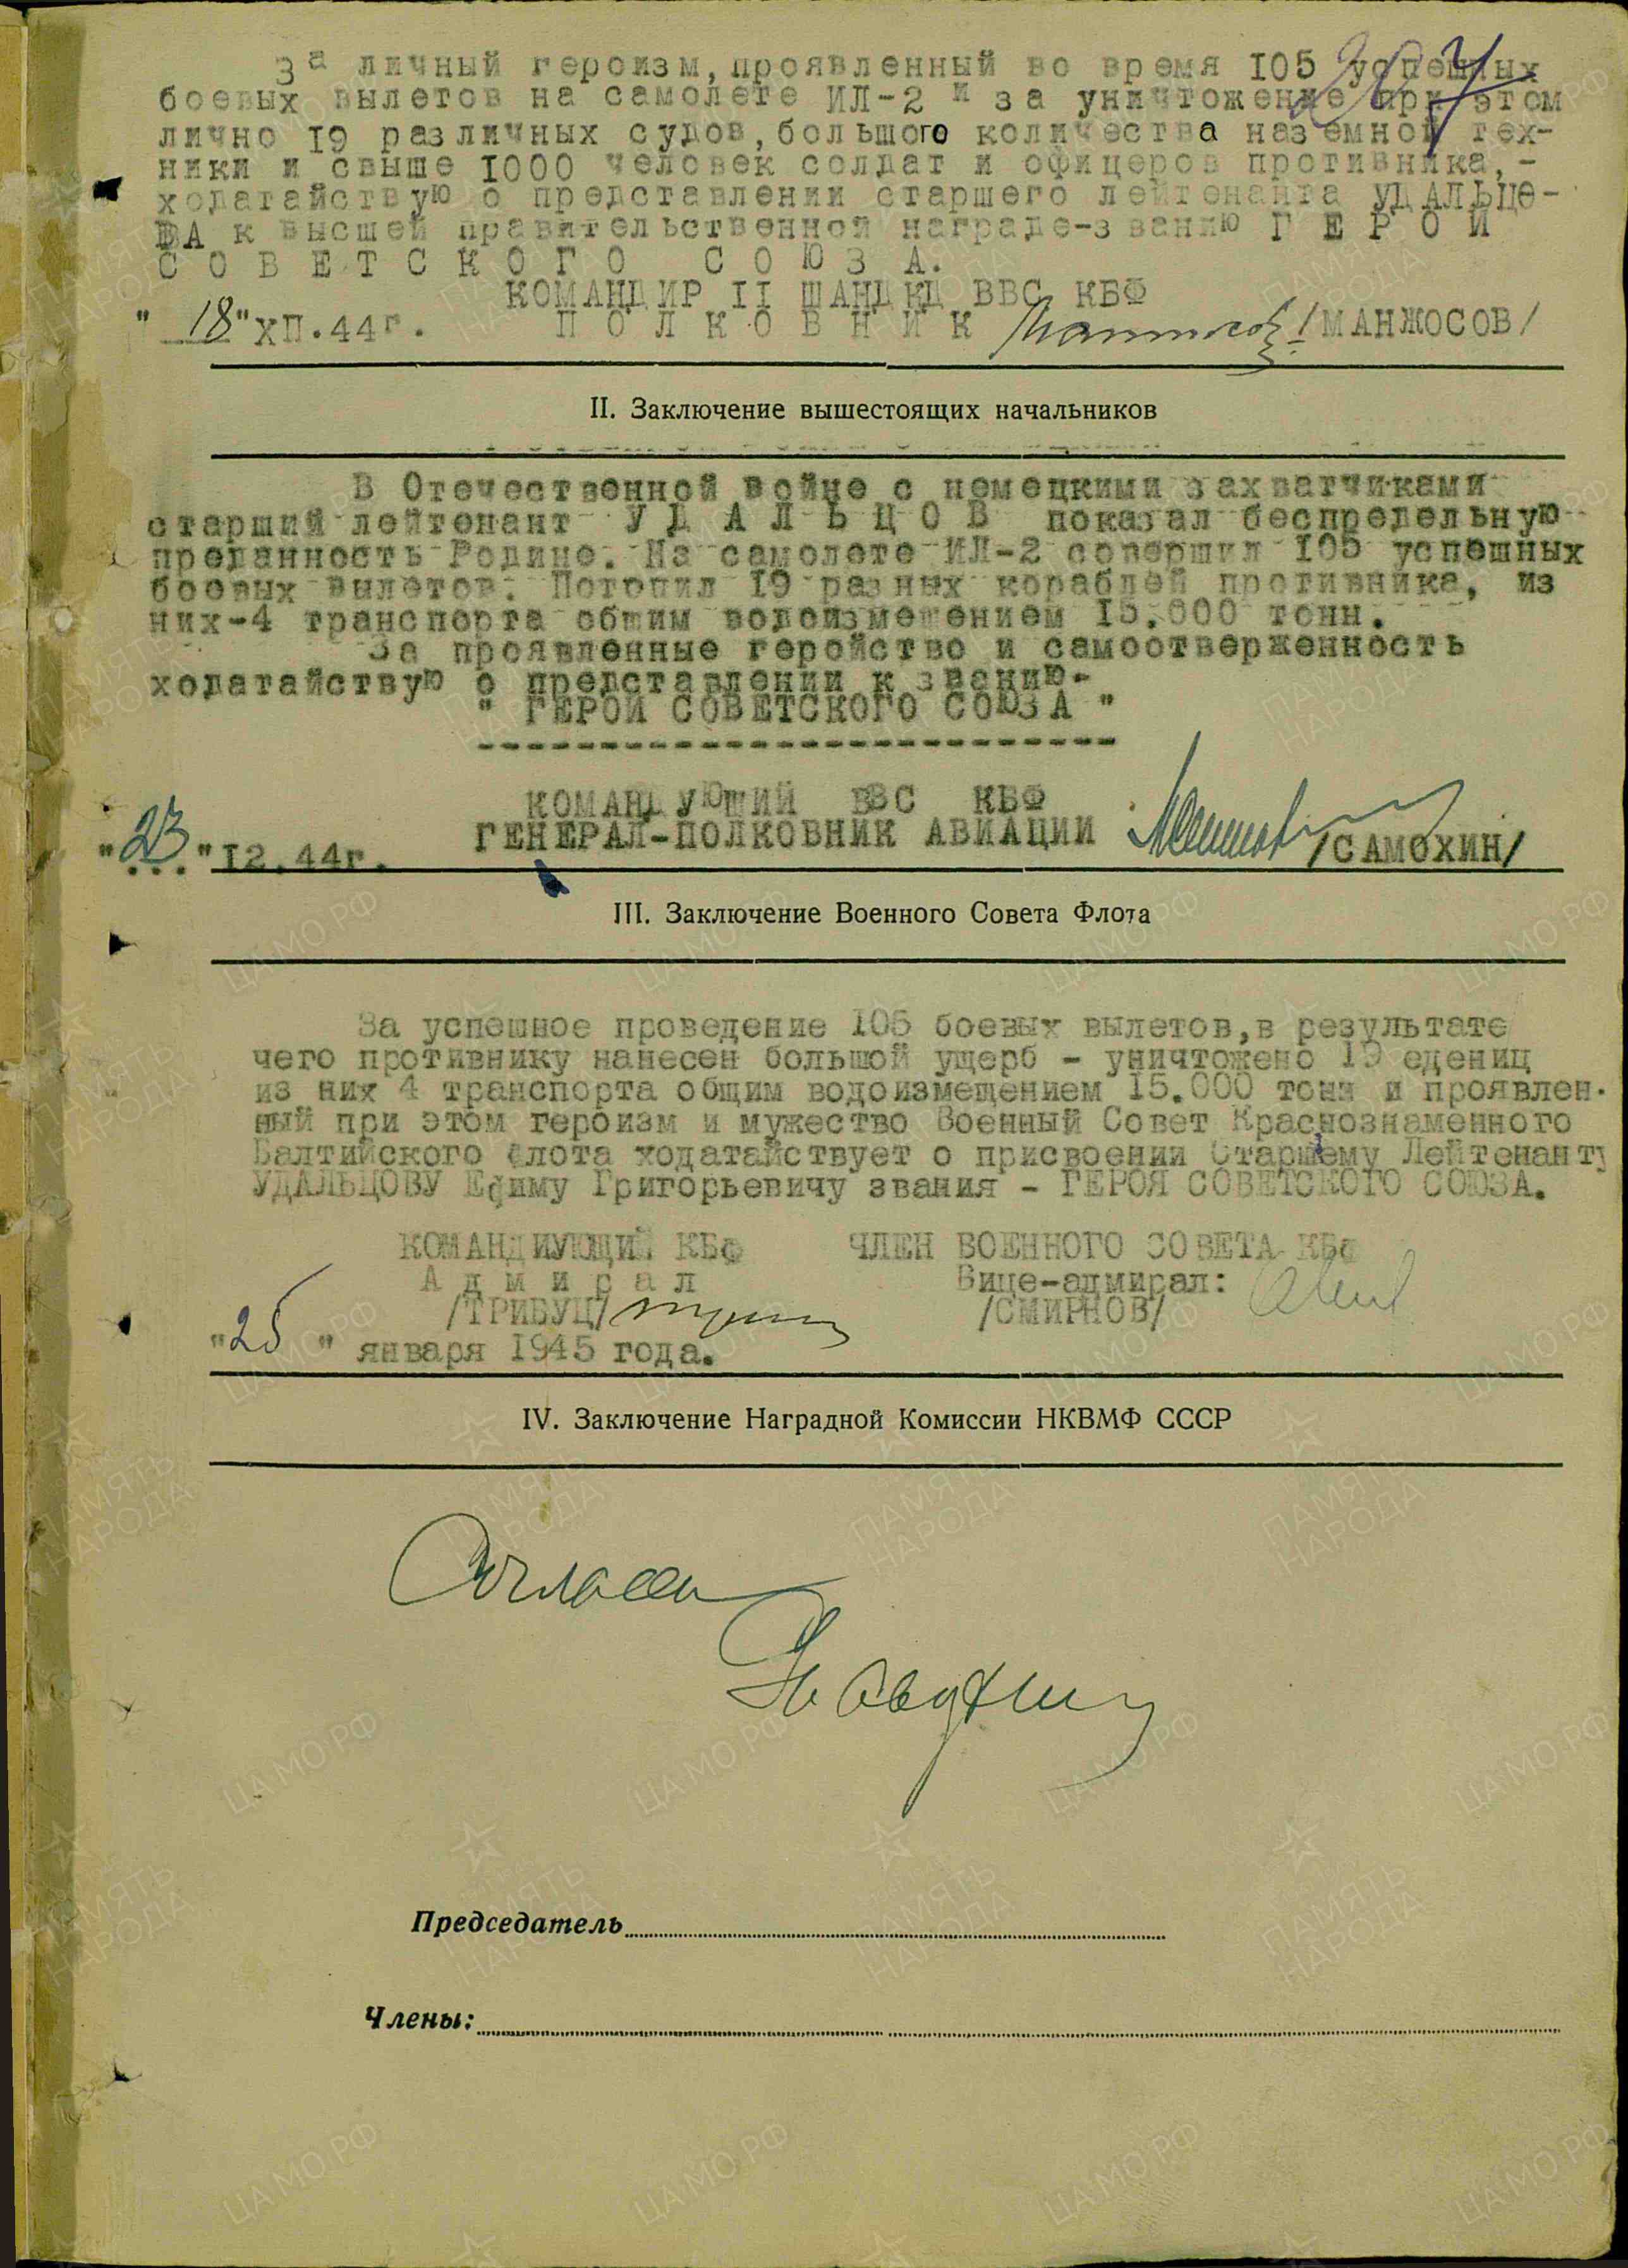 За личный героизм, проявленный во время 105 успешных
боевых вылетов на самолете ИЛ-2 и за уничтожение при этом
лично 19 различных судов, большого количества наземной тех-
ники и свыше 1000 человек солдат и офицеров противника, -
ходатайствую о представлении старшего лейтенанта УДАЛЬЦО-
ВА к высшей правительственной награде-званию Г Е Р О Й
С О В Е Т С К О Г О С О Ю З А.
КОМАНДИР II ШАНДКД ВВС КБФ
"18" ХП.44г. П О Л К О В Н И К /МАНЖОСОВ/
II. Заключение вышестоящих начальников
В Отечественной войне с немецкими захватчиками
старший лейтенант У Д А Л Ь Ц О В показал беспредельную
преданность Родине. На самолете ИЛ-2 совершил 105 успешных
боевых вылетов. Потопил 19 разных кораблей противника, из
них-4 транспорта общим водоизмещением 15.000 тонн.
За проявленные геройство и самоотверженность
ходатайствую о представлении к званию-
" ГЕРОЙ СОВЕТСКОГО СОЮЗА "
КОМАНДУЮЩИЙ ВВС КБФ
ГЕНЕРАЛ-ПОЛКОВНИК АВИАЦИИ
"23" 12.44г. /САМОХИН/
III. Заключение Военного Совета Флота
За успешное проведение 105 боевых вылетов, в результате
чего противнику нанесен большой ущерб - уничтожено 19 едениц
из них 4 транспорта общим водоизмещением 15.000 тонн и проявлен-
ный при этом героизм и мужество Военный Совет Краснознаменного
Балтийского Флота ходатайствует о присвоении Старшему Лейтенанту
УДАЛЬЦОВУ Ефиму Григорьевичу звания - ГЕРОЯ СОВЕТСКОГО СОЮЗА.
КОМАНДИУЮЩИЙ КБФ ЧЛЕН ВОЕННОГО СОВЕТА КБФ
А д м и р а л Вице-адмирал:
/ТРИБУЦ/ /СМИРНОВ/
"25" января 1945 года.
IV. Заключение Наградной Комиссии НКВМФ СССР
Согласен
Председатель
Члены: